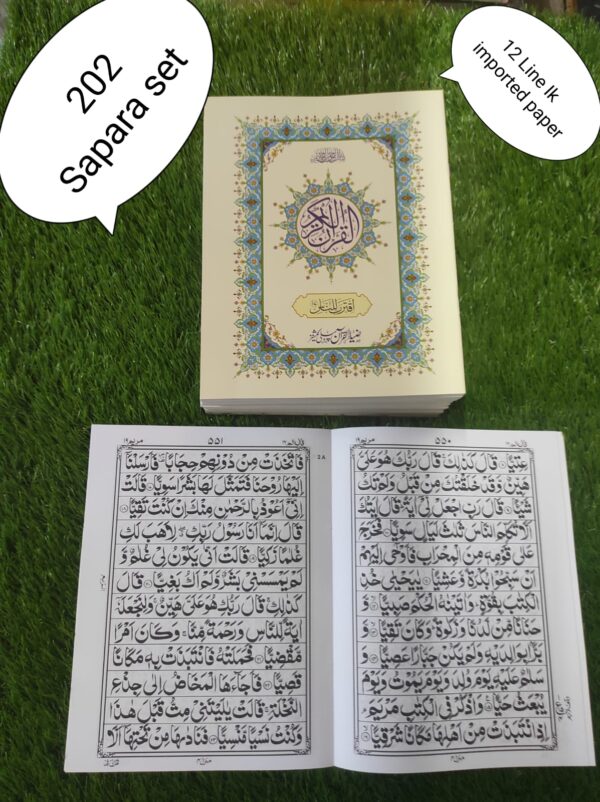 202
Sapara set
12 Line Ik
imported paper
القرآن الكريم
اقترب للناس
ضیاءالقرآن پبلی کیشنز
مريم ١٩
٥٥٠
قال الم ١٦
عِتِيًّا ۝۸ قَالَ كَذٰلِكَ ۚ قَالَ رَبُّكَ هُوَ عَلَيَّ
هَيِّنٌ وَّقَدْ خَلَقْتُكَ مِنْ قَبْلُ وَلَمْ تَكُ
شَيْـًٔا ۝۹ قَالَ رَبِّ اجْعَلْ لِّيْٓ اٰيَةً ؕ قَالَ اٰيَتُكَ
اَلَّا تُكَلِّمَ النَّاسَ ثَلٰثَ لَيَالٍ سَوِيًّا ۝۱۰ فَخَرَجَ
عَلٰى قَوْمِهٖ مِنَ الْمِحْرَابِ فَاَوْحٰۤى اِلَيْهِمْ
اَنْ سَبِّحُوْا بُكْرَةً وَّعَشِيًّا ۝۱۱ يٰيَحْيٰى خُذِ
الْكِتٰبَ بِقُوَّةٍ ؕ وَاٰتَيْنٰهُ الْحُكْمَ صَبِيًّا ۝۱۲ وَّ
حَنَانًا مِّنْ لَّدُنَّا وَزَكٰوةً ؕ وَكَانَ تَقِيًّا ۝۱۳ وَّ
بَرًّۢا بِوَالِدَيْهِ وَلَمْ يَكُنْ جَبَّارًا عَصِيًّا ۝۱۴ وَ
سَلٰمٌ عَلَيْهِ يَوْمَ وُلِدَ وَيَوْمَ يَمُوْتُ وَيَوْمَ
يُبْعَثُ حَيًّا ۝۱۵ وَاذْكُرْ فِى الْكِتٰبِ مَرْيَمَ ۘ
اِذِ انْتَبَذَتْ مِنْ اَهْلِهَا مَكَانًا شَرْقِيًّا ۝۱۶
قال الم ١٦
٥٥١
مريم ١٩
فَاتَّخَذَتْ مِنْ دُوْنِهِمْ حِجَابًا ۫ فَاَرْسَلْنَاۤ
اِلَيْهَا رُوْحَنَا فَتَمَثَّلَ لَهَا بَشَرًا سَوِيًّا ۝۱۷ قَالَتْ
اِنِّيْٓ اَعُوْذُ بِالرَّحْمٰنِ مِنْكَ اِنْ كُنْتَ تَقِيًّا ۝۱۸
قَالَ اِنَّمَاۤ اَنَا رَسُوْلُ رَبِّكِ ۖ لِاَهَبَ لَكِ
غُلٰمًا زَكِيًّا ۝۱۹ قَالَتْ اَنّٰى يَكُوْنُ لِيْ غُلٰمٌ وَّ
لَمْ يَمْسَسْنِيْ بَشَرٌ وَّلَمْ اَكُ بَغِيًّا ۝۲۰ قَالَ
كَذٰلِكِ ۚ قَالَ رَبُّكِ هُوَ عَلَيَّ هَيِّنٌ ۚ وَلِنَجْعَلَهٗۤ
اٰيَةً لِّلنَّاسِ وَرَحْمَةً مِّنَّا ۚ وَكَانَ اَمْرًا
مَّقْضِيًّا ۝۲۱ فَحَمَلَتْهُ فَانْتَبَذَتْ بِهٖ مَكَانًا
قَصِيًّا ۝۲۲ فَاَجَآءَهَا الْمَخَاضُ اِلٰى جِذْعِ
النَّخْلَةِ ۚ قَالَتْ يٰلَيْتَنِيْ مِتُّ قَبْلَ هٰذَا
وَكُنْتُ نَسْيًا مَّنْسِيًّا ۝۲۳ فَنَادٰىهَا مِنْ تَحْتِهَاۤ اَلَّا